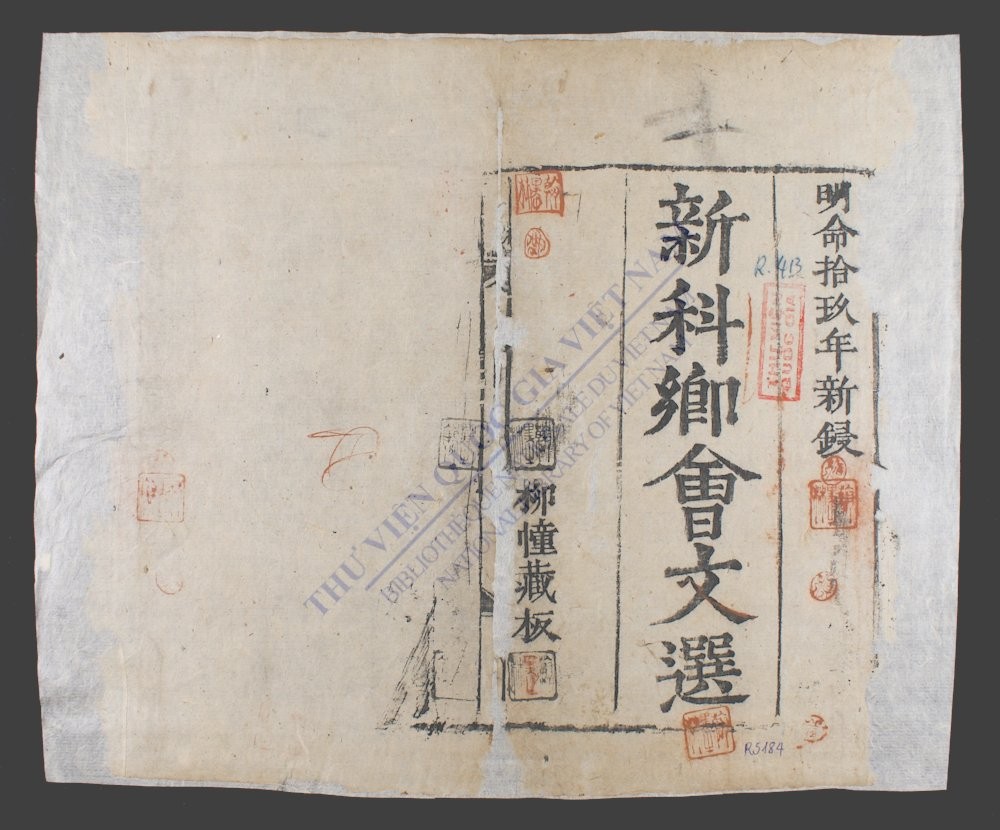 明命拾玖年新鋟
新科鄉會文選
柳幢藏板
R. 413
THƯ VIỆN
QUỐC GIA
R5184
THƯ VIỆN QUỐC GIA VIỆT NAM
BIBLIOTHÈQUE NATIONALE DU VIETNAM
NATIONAL LIBRARY OF VIETNAM